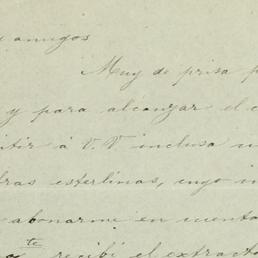 amigos
Muy de prisa
y para alcanzar el
á V.V inclusa
esterlinas, cuyo
abonarme en cuenta
te recibí el extracto